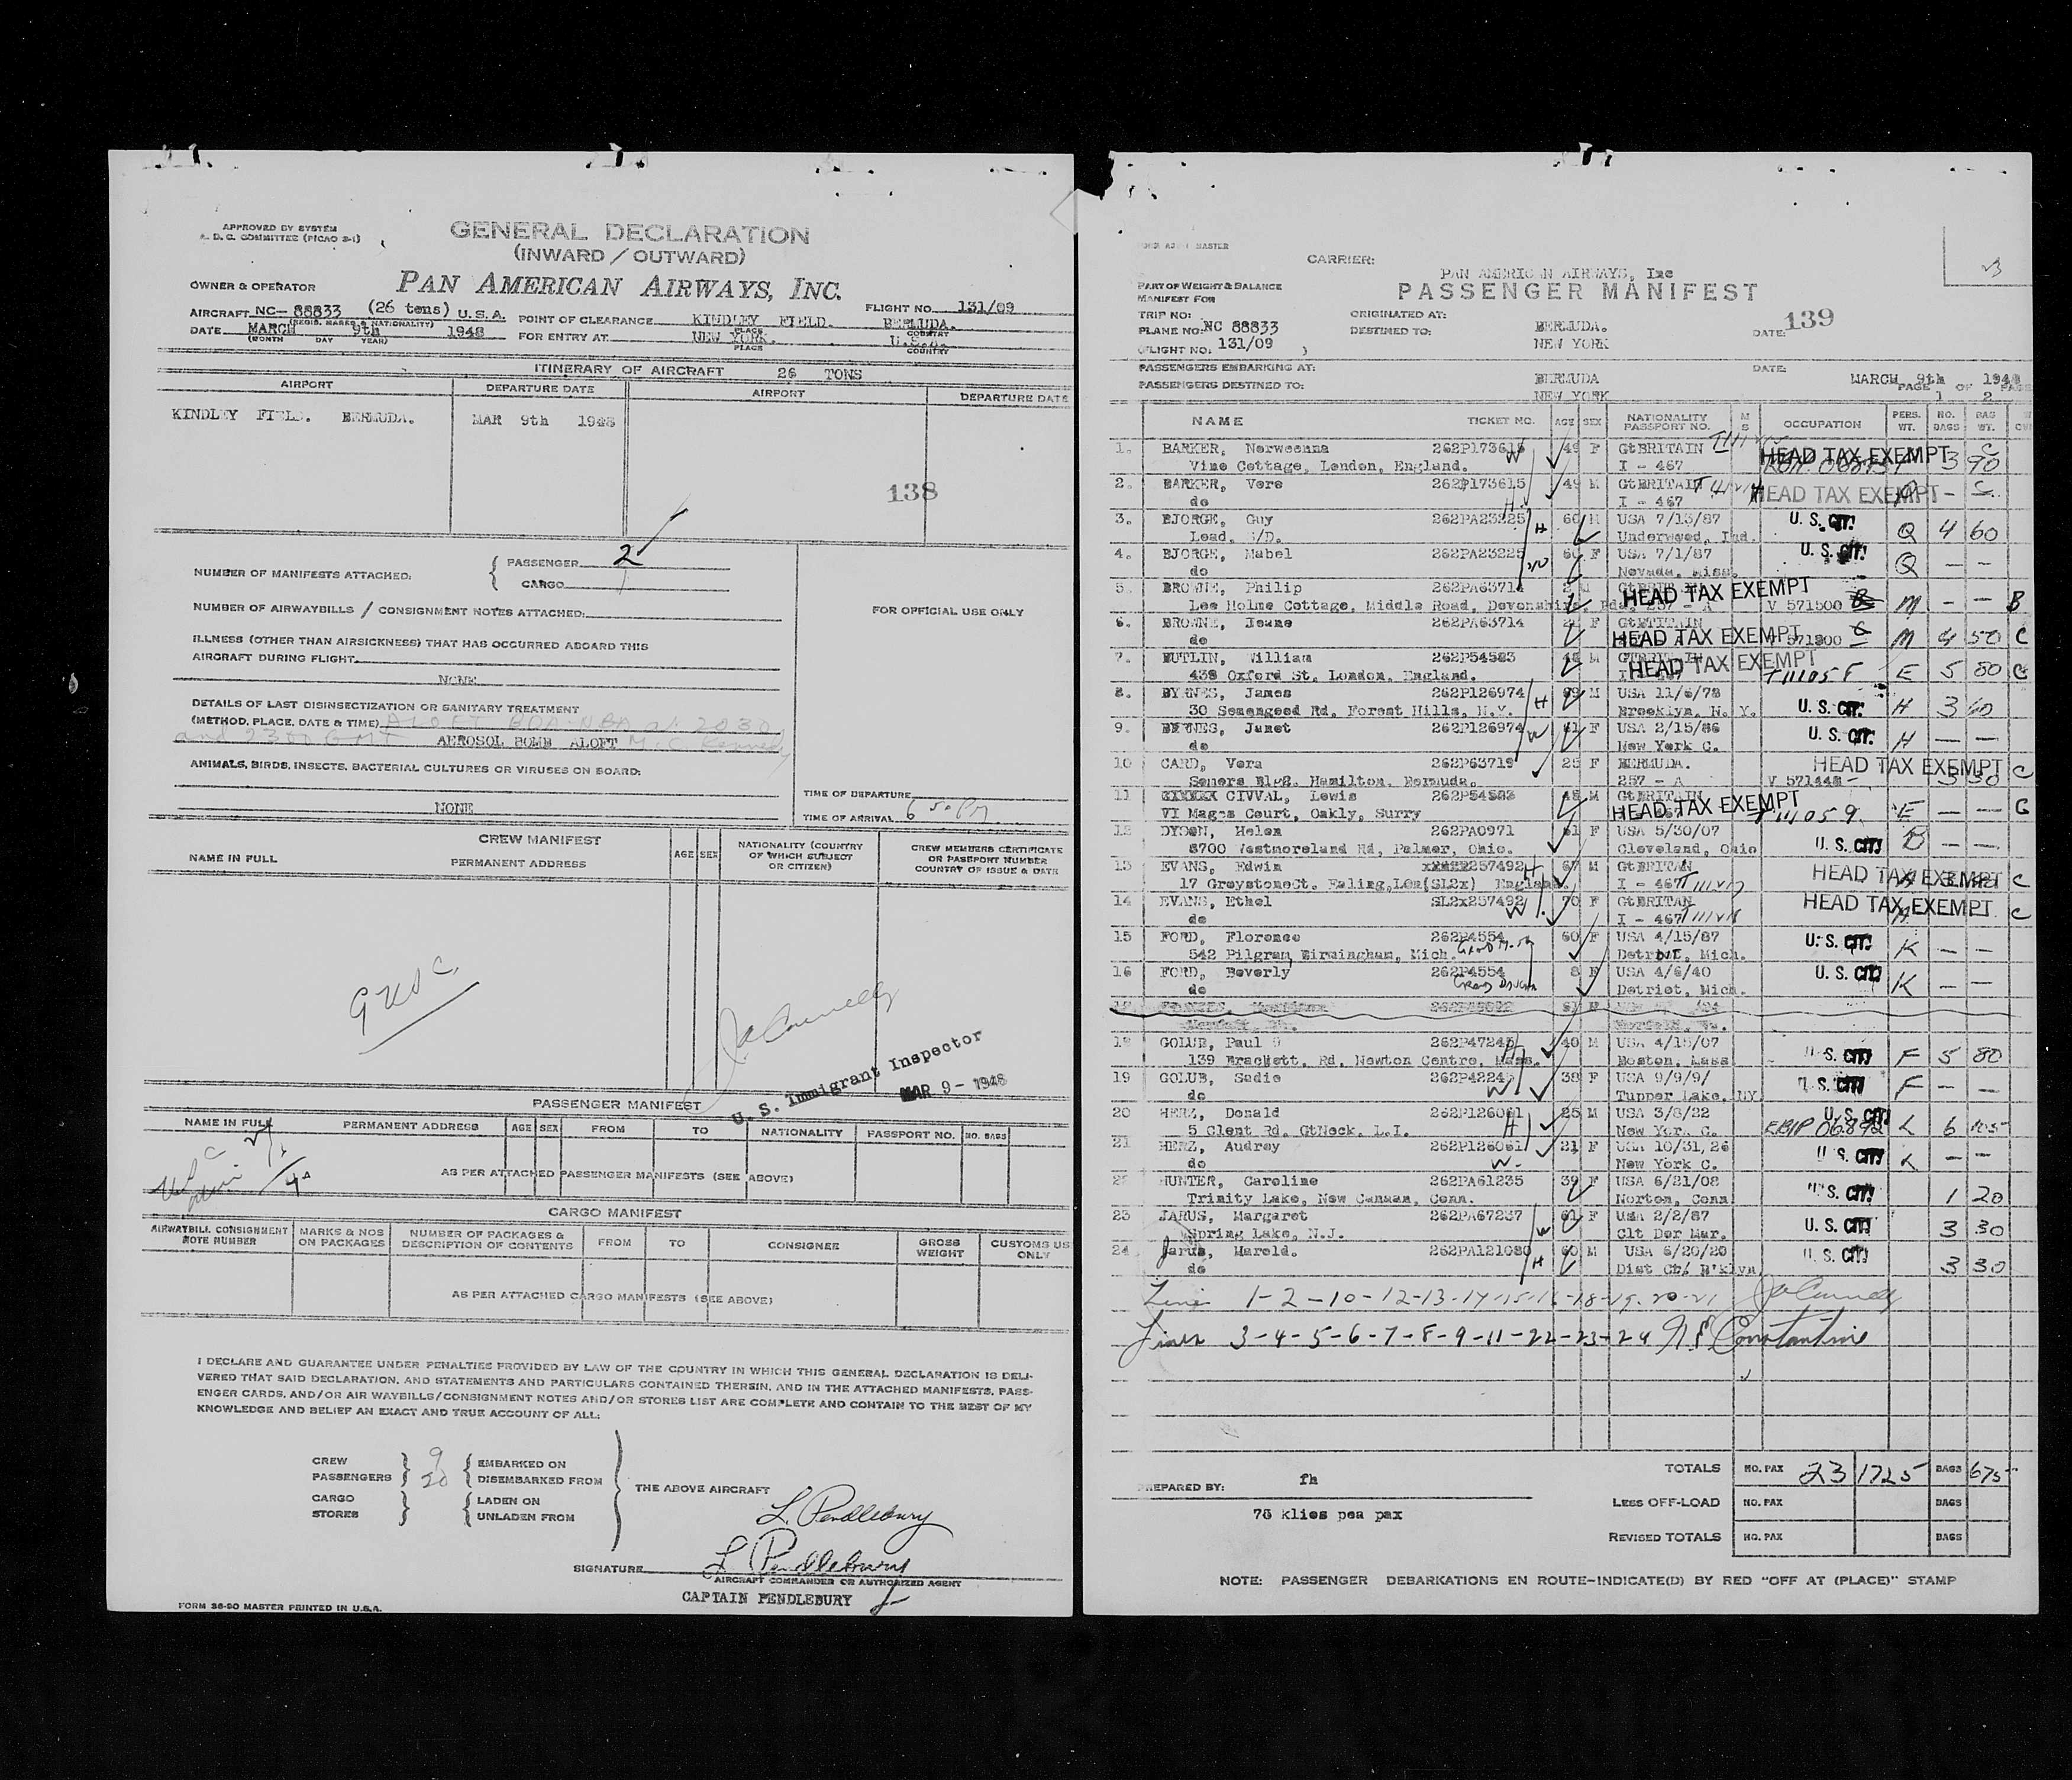 APPROVED BY SYSTEM
A. D. C. COMMITTEE (PICAO 2-1)
GENERAL DECLARATION
(INWARD / OUTWARD)
OWNER & OPERATOR
PAN AMERICAN AIRWAYS, INC.
AIRCRAFT NC- 88833 (26 tons) U.S.A.
(REGIS. MARKS & NATIONALITY)
POINT OF CLEARANCE KINDLEY FIELD. BERMUDA.
PLACE COUNTRY
FLIGHT NO. 131/09
DATE MARCH 9th 1948
(MONTH DAY YEAR)
FOR ENTRY AT NEW YORK. U.S.A.
PLACE COUNTRY
ITINERARY OF AIRCRAFT 26 TONS
AIRPORT DEPARTURE DATE AIRPORT DEPARTURE DATE
KINDLEY FIELD. BERMUDA. MAR 9th 1948
138
NUMBER OF MANIFESTS ATTACHED: PASSENGER 2
CARGO
NUMBER OF AIRWAYBILLS / CONSIGNMENT NOTES ATTACHED:
FOR OFFICIAL USE ONLY
ILLNESS (OTHER THAN AIRSICKNESS) THAT HAS OCCURRED ABOARD THIS
AIRCRAFT DURING FLIGHT
NONE
DETAILS OF LAST DISINSECTIZATION OR SANITARY TREATMENT
(METHOD, PLACE, DATE & TIME) ALOFT BDA-NBA at 2030
and 2300 GMT AEROSOL BOMB ALOFT M. C. Kennedy
ANIMALS, BIRDS, INSECTS, BACTERIAL CULTURES OR VIRUSES ON BOARD:
NONE
TIME OF DEPARTURE
TIME OF ARRIVAL 6 50 PM
CREW MANIFEST
NAME IN FULL PERMANENT ADDRESS AGE SEX NATIONALITY (COUNTRY OF WHICH SUBJECT OR CITIZEN) CREW MEMBERS CERTIFICATE OR PASSPORT NUMBER COUNTRY OF ISSUE & DATE
9 USC
U. S. Immigrant Inspector
MAR 9 - 1948
PASSENGER MANIFEST
NAME IN FULL PERMANENT ADDRESS AGE SEX FROM TO NATIONALITY PASSPORT NO. NO. BAGS
AS PER ATTACHED PASSENGER MANIFESTS (SEE ABOVE)
CARGO MANIFEST
AIRWAYBILL CONSIGNMENT NOTE NUMBER MARKS & NOS ON PACKAGES NUMBER OF PACKAGES & DESCRIPTION OF CONTENTS FROM TO CONSIGNEE GROSS WEIGHT CUSTOMS US ONLY
AS PER ATTACHED CARGO MANIFESTS (SEE ABOVE)
I DECLARE AND GUARANTEE UNDER PENALTIES PROVIDED BY LAW OF THE COUNTRY IN WHICH THIS GENERAL DECLARATION IS DELI-
VERED THAT SAID DECLARATION, AND STATEMENTS AND PARTICULARS CONTAINED THEREIN, AND IN THE ATTACHED MANIFESTS, PASS-
ENGER CARDS, AND/OR AIR WAYBILLS/CONSIGNMENT NOTES AND/OR STORES LIST ARE COMPLETE AND CONTAIN TO THE BEST OF MY
KNOWLEDGE AND BELIEF AN EXACT AND TRUE ACCOUNT OF ALL:
CREW 9 EMBARKED ON
PASSENGERS 20 DISEMBARKED FROM
THE ABOVE AIRCRAFT
CARGO LADEN ON
STORES UNLADEN FROM
L. Pendlebury
SIGNATURE L Pendlebury
AIRCRAFT COMMANDER OR AUTHORIZED AGENT
CAPTAIN PENDLEBURY
FORM 36-90 MASTER PRINTED IN U.S.A.
MASTER
CARRIER: PAN AMERICAN AIRWAYS, Inc
PASSENGER MANIFEST
PART OF WEIGHT & BALANCE
MANIFEST FOR
TRIP NO:
PLANE NO: NC 88833
(FLIGHT NO: 131/09 )
ORIGINATED AT: BERMUDA.
DESTINED TO: NEW YORK
DATE: 139
PASSENGERS EMBARKING AT: BERMUDA
PASSENGERS DESTINED TO: NEW YORK
DATE: MARCH 9th 1948
PAGE 1 OF 2 PAGES
NAME TICKET NO. AGE SEX NATIONALITY PASSPORT NO. M S OCCUPATION PERS. WT. NO. BAGS BAG WT.
1. BARKER, Norweenna 262P173615 49 F GtBRITAIN HEAD TAX EXEMPT 3 90
Vine Cottage, London, England. I - 467
2. BARKER, Vere 262P173615 49 M GtBRITAIN HEAD TAX EXEMPT
do I - 467
3. BJORGE, Guy 262PA23225 60 M USA 7/15/87 U. S. CIT. Q 4 60
Lead. S/D. Underwood, Ind.
4. BJORGE, Mabel 262PA23225 60 F USA 7/1/87 U. S. CIT. Q — —
do Nevada, Miss.
5. BROWNE, Philip 262PA63714 HEAD TAX EXEMPT M — — B
Lee Holme Cottage, Middle Road, Devonshire, V 571500
6. BROWNE, Jeane 262PA63714 GtBRITAIN HEAD TAX EXEMPT M 4 50 C
do
7. BUTLIN, William 262P54583 48 M HEAD TAX EXEMPT E 5 80 C
439 Oxford St, London, England.
8. BYRNES, James 262P126974 69 M USA 11/6/78 U. S. CIT. H 3 60
30 Semengeed Rd, Forest Hills, N.Y. Brooklyn, N. Y.
9. BYRNES, Janet 262P126974 61 F USA 2/15/86 U. S. CIT. H — —
do New York C.
10 CARD, Vera 262P63719 25 F BERMUDA. HEAD TAX EXEMPT C
Somers Blg2. Hamilton. Bermuda. 257 - A
11 CIVVAL, Lewis 262P54583 48 M GtBRITAIN HEAD TAX EXEMPT E — — C
VI Mages Court, Oakly, Surry
12 DYSON, Helen 262PA0971 61 F USA 5/30/07 U. S. CIT. — —
8700 Westmoreland Rd, Palmer, Ohio. Cleveland, Ohio
13 EVANS, Edwin 257492 67 M GtBRITAN HEAD TAX EXEMPT C
17 GreystoneCt. Ealing,Lon(SL2x) England. I - 467
14 EVANS, Ethel SL2x257492 70 F GtBRITAN HEAD TAX EXEMPT C
do I - 467
15 FORD, Florence 262P4554 60 F USA 4/15/87 U. S. CIT. K — —
542 Pilgram, Birmingham, Mich. Detroit, Mich.
16 FORD, Beverly 262P4554 8 F USA 4/6/40 U. S. CIT. K — —
do Detriet, Mich.
18 GOLUB, Paul 9 262P47245 40 M USA 4/15/07 U. S. CIT. F 5 80
139 Brackett. Rd, Newton Centre, Mass. Boston, Mass
19 GOLUB, Sadie 38 F USA 9/9/9/ U. S. CIT. F — —
do Tupper Lake, NY
20 HERZ, Donald 262P126061 25 M USA 3/8/22 U. S. CIT. L 6 105
5 Clent Rd. GtNeck. L.I. New Yor. C.
21 HERZ, Audrey 262P126061 21 F USA 10/31,26 U. S. CIT. L — —
do New York C.
22 HUNTER, Caroline 262PA61235 39 F USA 6/21/08 U. S. CIT. 1 20
Trinity Lake, New Canaan, Conn. Norton, Conn
23 JARUS, Margaret 262PA67237 61 F USA 2/2/87 U. S. CIT. 3 30
Spring Lake, N.J. Clt Der Mar.
24 Jarus, Mareld. 262PA121080 60 M USA 6/20/20 U. S. CIT. 3 30
do Dist Ct/ B'klyn
Lines 1-2-10-12-13-14-15-16-18-19-20-21
Lines 3-4-5-6-7-8-9-11-22-23-24 Constantine
PREPARED BY: fh
78 klies pea pax
TOTALS NO. PAX 23 1725 BAGS 675
LESS OFF-LOAD NO. PAX BAGS
REVISED TOTALS NO. PAX BAGS
NOTE: PASSENGER DEBARKATIONS EN ROUTE-INDICATE(D) BY RED "OFF AT (PLACE)" STAMP